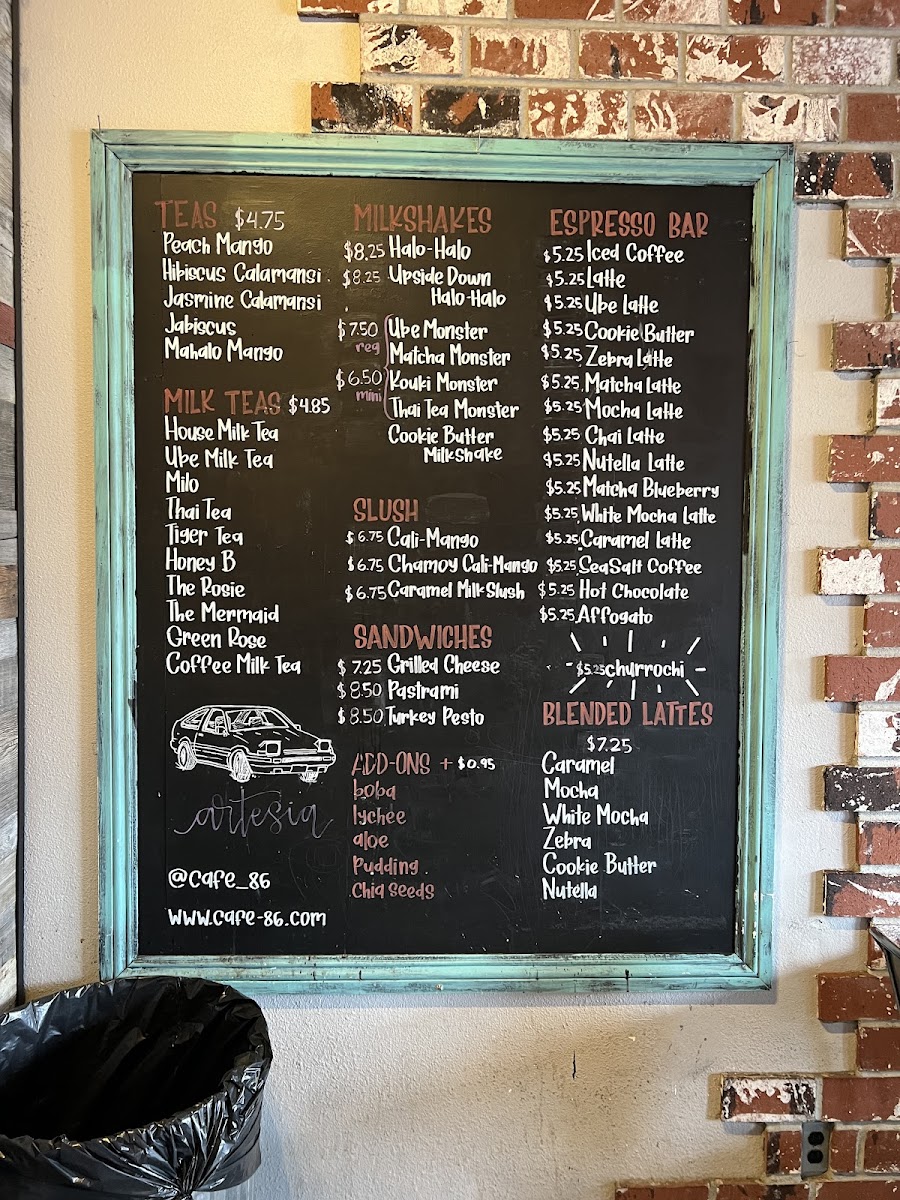 TEAS $4.75
Peach Mango
Hibiscus Calamansi
Jasmine Calamansi
Jabiscus
Mahalo Mango
MILK TEAS $4.85
House Milk Tea
Ube Milk Tea
Milo
Thai Tea
Tiger Tea
Honey B
The Rosie
The Mermaid
Green Rose
Coffee Milk Tea
artesia
@cafe_86
www.cafe-86.com
MILKSHAKES
$8.25 Halo-Halo
$8.25 Upside Down
Halo-Halo
$7.50 Ube Monster
reg
Matcha Monster
$6.50 Kouki Monster
mini
Thai Tea Monster
Cookie Butter
Milkshake
SLUSH
$6.75 Cali-Mango
$6.75 Chamoy Cali-Mango
$6.75 Caramel Milk Slush
SANDWICHES
$7.25 Grilled Cheese
$8.50 Pastrami
$8.50 Turkey Pesto
ADD-ONS + $0.95
boba
lychee
aloe
Pudding
Chia Seeds
ESPRESSO BAR
$5.25 Iced Coffee
$5.25 Latte
$5.25 Ube Latte
$5.25 Cookie Butter
$5.25 Zebra Latte
$5.25 Matcha Latte
$5.25 Mocha Latte
$5.25 Chai Latte
$5.25 Nutella Latte
$5.25 Matcha Blueberry
$5.25 White Mocha Latte
$5.25 Caramel Latte
$5.25 SeaSalt Coffee
$5.25 Hot Chocolate
$5.25 Affogato
$5.25 churrochi
BLENDED LATTES
$7.25
Caramel
Mocha
White Mocha
Zebra
Cookie Butter
Nutella